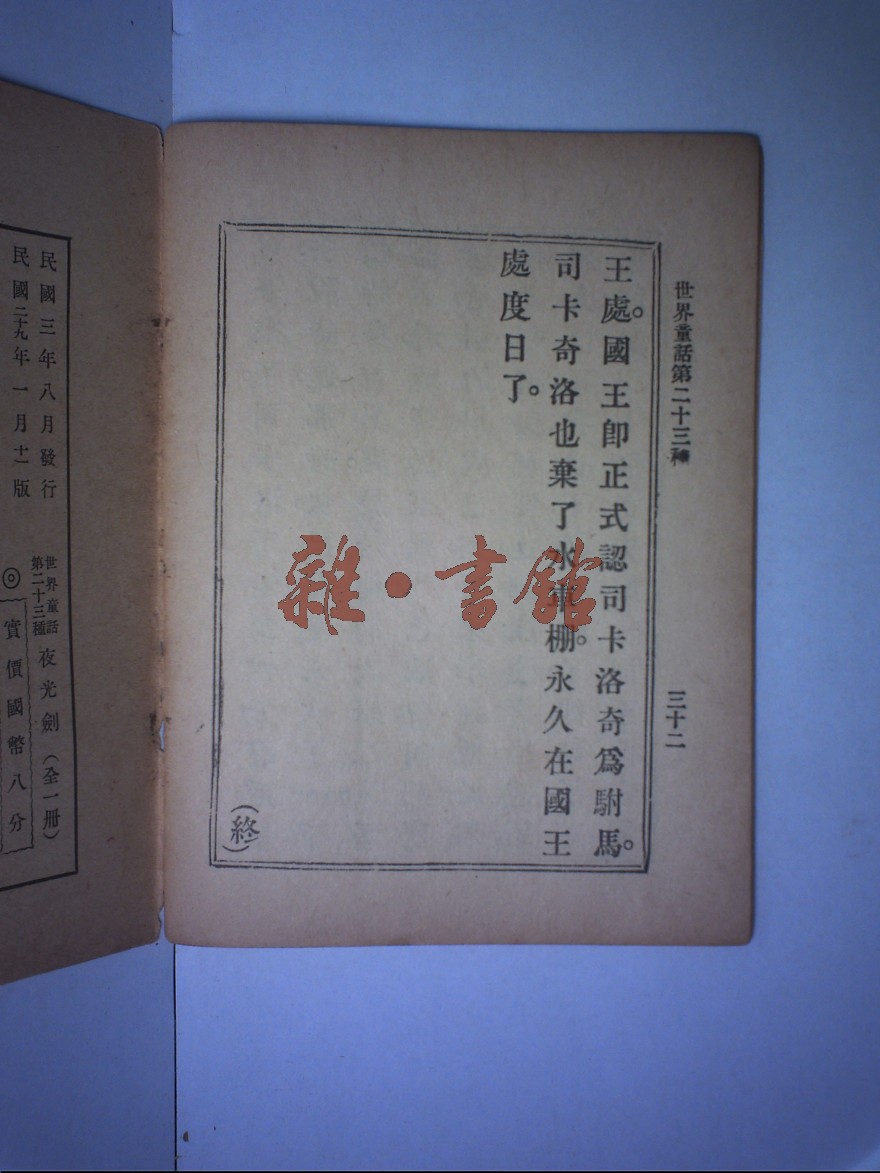 世界童話第二十三種
三十二
王處。國王卽正式認司卡洛奇爲駙馬。
司卡奇洛也棄了水車棚。永久在國王
處度日了。
(終)
雜·書館
世界童話
第二十三種
夜光劍(全一冊)
實價國幣八分
民國三年八月發行
民國二十九年一月十一版